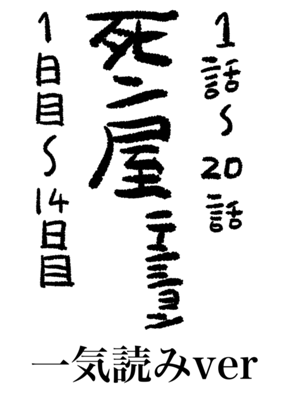 1話～20話
死ン屋テンション
1日目～14日目
一気読みver